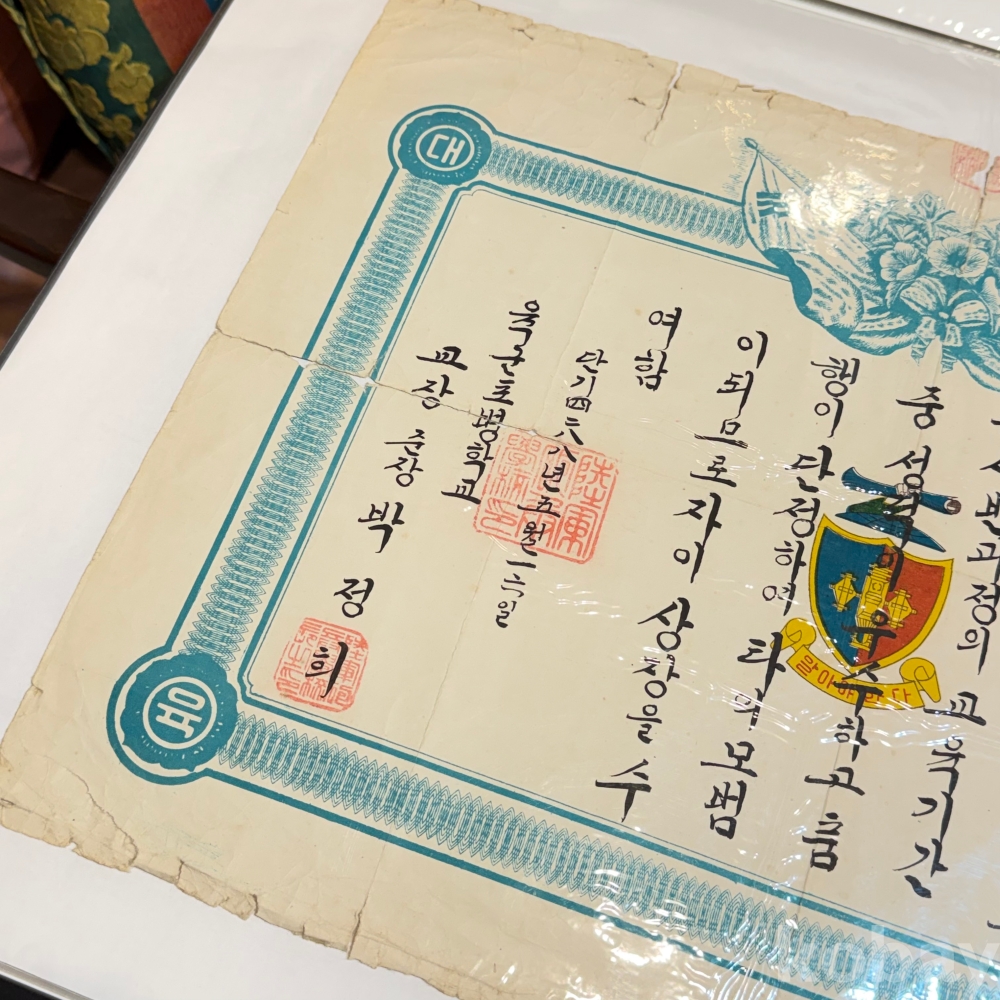 반과정의 교육기간
중 성적이 우수하고 품
행이 단정하여 타의 모범
이되므로 자이 상장을 수
여함
단기四二八八년 五월 一六일
육군포병학교
교장 준장 박 정 희
대
육
알아야 한다